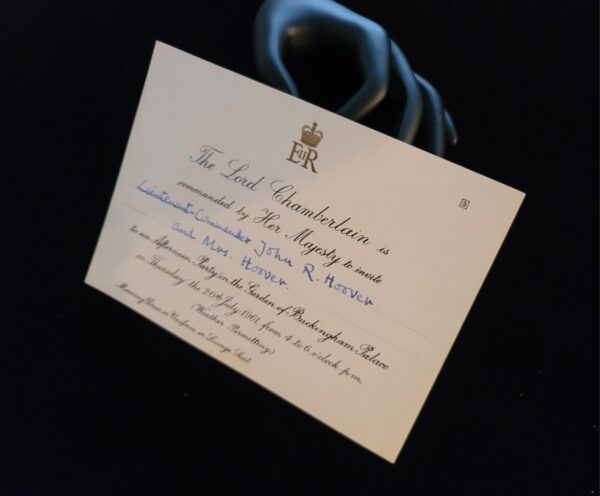 EIIR
The Lord Chamberlain is
commanded by Her Majesty to invite
Lieutenant-Commander John R. Hoover
and Mrs. Hoover
to an Afternoon Party in the Garden of Buckingham Palace
on Thursday the 20th July 1961 from 4 to 6 o'clock p.m.
(Weather Permitting)
Morning Dress or Uniform or Lounge Suit.